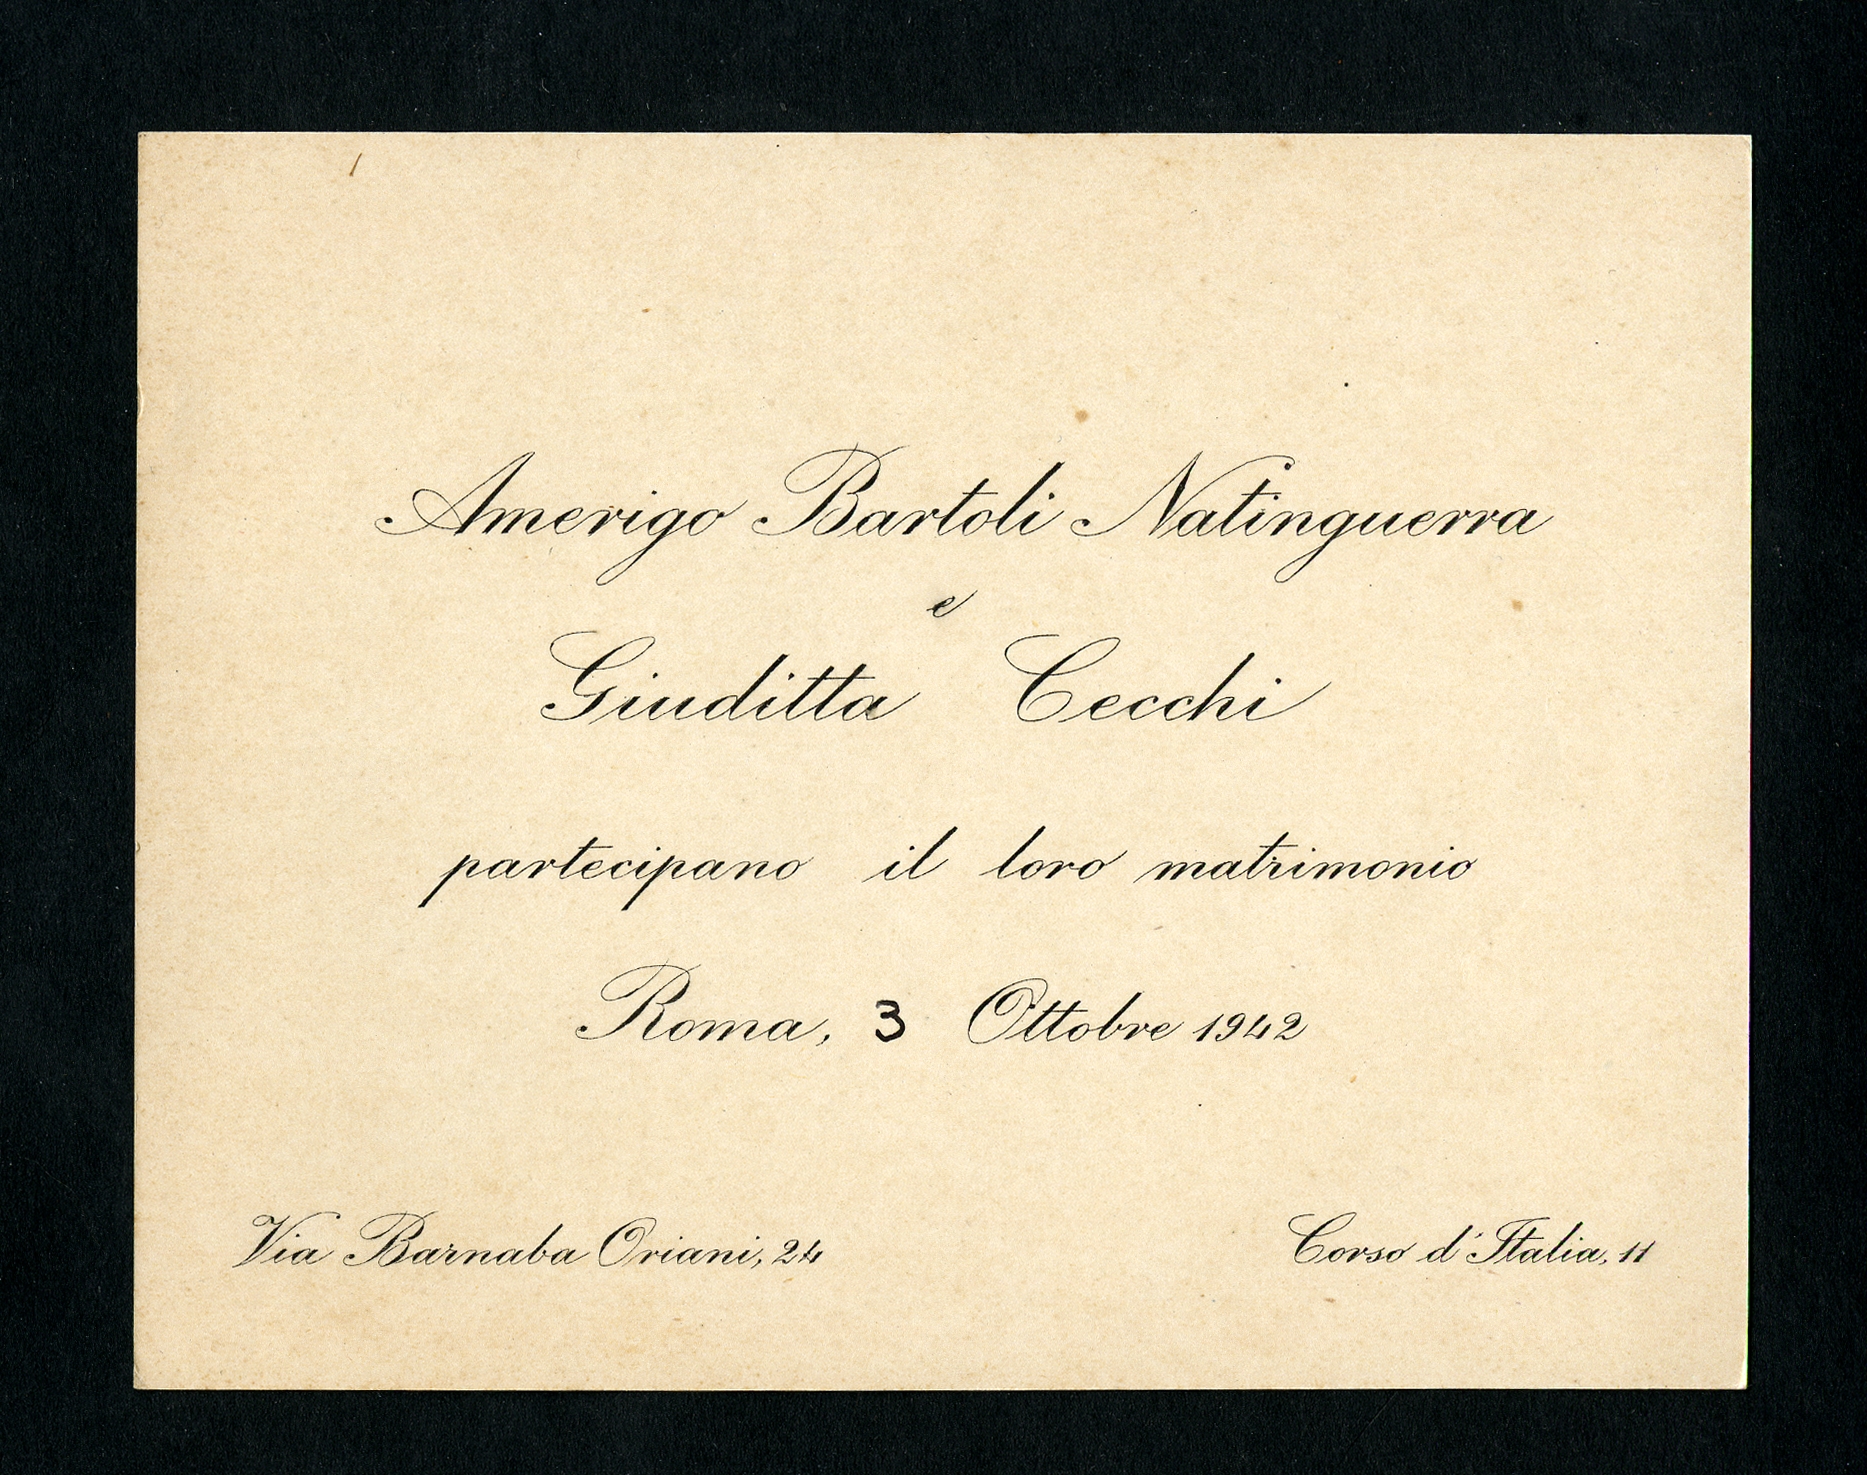 Amerigo Bartoli Natinguerra
e
Giuditta Cecchi
partecipano il loro matrimonio
Roma, 3 Ottobre 1942
Via Barnaba Oriani, 24
Corso d'Italia, 11